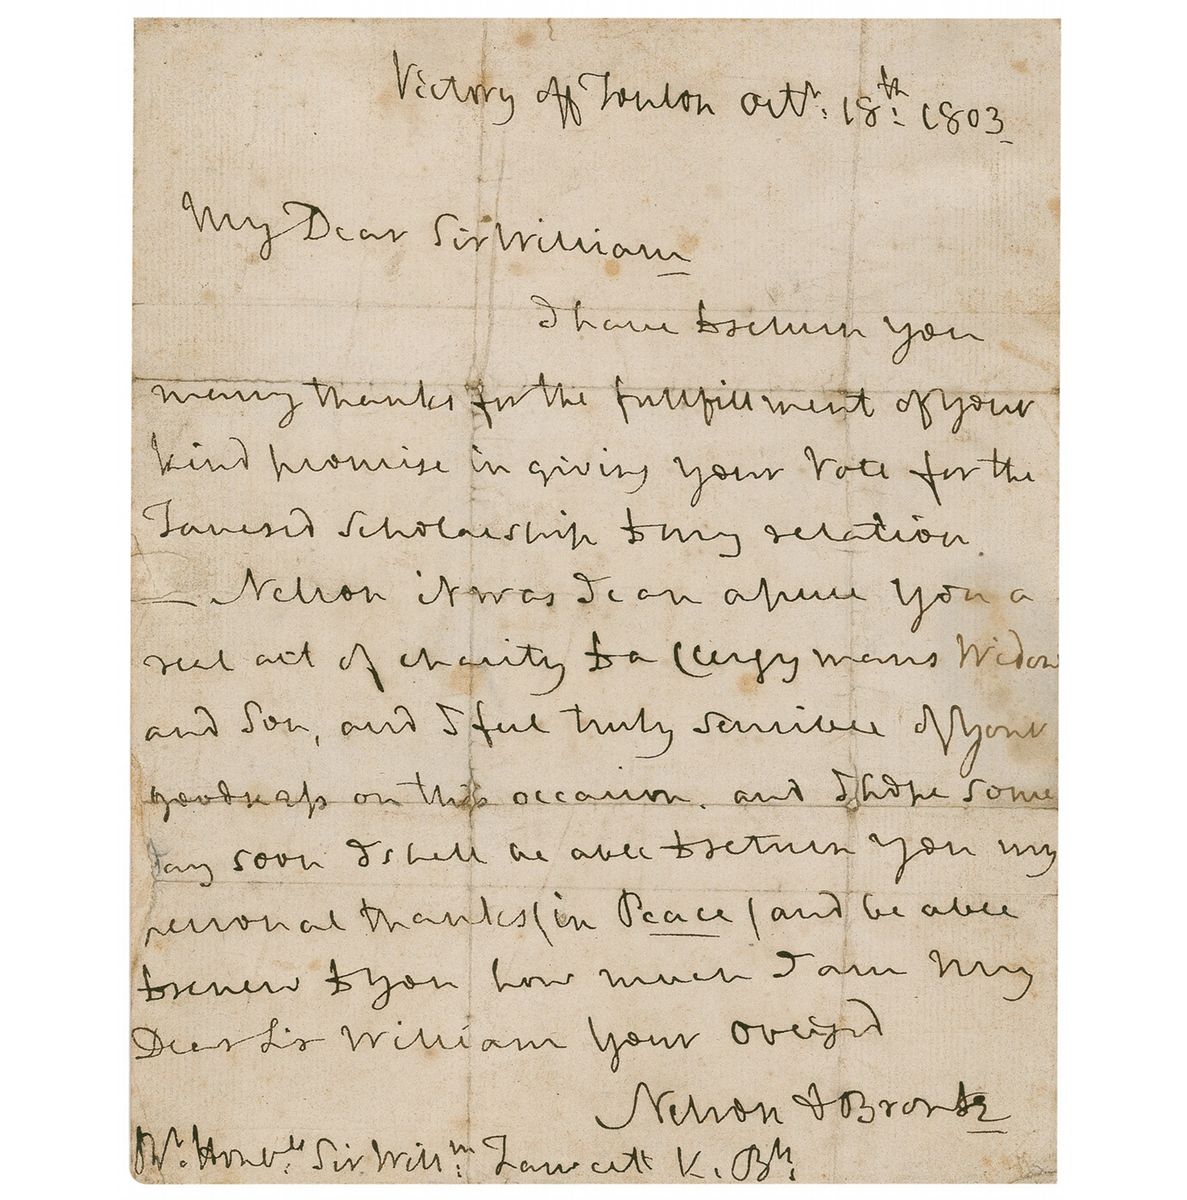 Victory off Toulon Octr: 18th: 1803
My Dear Sir William
I have to return you
many thanks for the fullfillment of your
kind promise in giving your Vote for the
Scholarship to my relation
Nelson it was I can assure you a
real act of charity to a Clergymans Widow
and Son, and I feel truly sensible of your
goodness on this occasion. and I hope some
day soon I shall be able to return you my
personal thanks (in Peace) and be able
to renew to you how much I am My
Dear Sir William your Oblig'd
Nelson & Bronte
Rt. Honble: Sir Willm: Fawcett K. Bth: